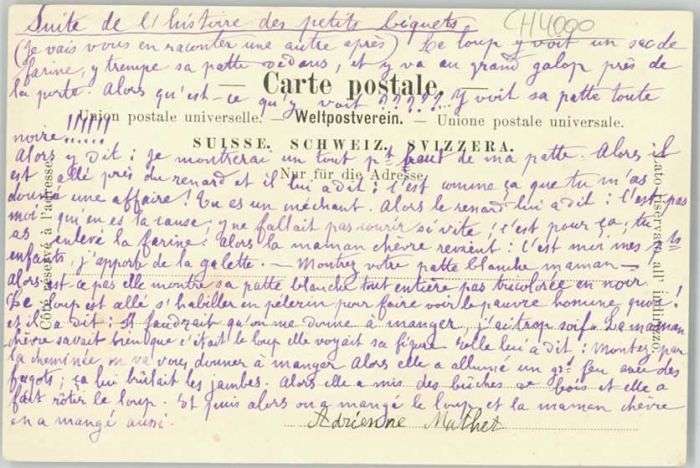 Suite de l'histoire des petits biquets.
CH4090
(Je vais vous en raconter une autre après) Le loup y voit un sac de
farine, y trempe sa patte dedans, et y va au grand galop près de
Carte postale.
la porte. Alors qu'est-ce qu'y voit ????? Y voit sa patte toute
Union postale universelle. — Weltpostverein. — Unione postale universale.
noire !!!!!!
SUISSE. SCHWEIZ. SVIZZERA.
Alors y dit : je montrerai un tout pt bout de ma patte. Alors il
Nur für die Adresse.
est allé près du renard et il lui a dit : c'est comme ça que tu m'as
donné une affaire ! Tu es un méchant. Alors le renard lui a dit : c'est pas
moi qu'en es la cause, y ne fallait pas courir si vite, c'est pour ça ; tu
as enlevé la farine. Alors la maman chèvre revient : C'est moi mes pts
enfants, j'apporte de la galette. — Montrez votre patte blanche maman —
Alors est ce pas elle montre sa patte blanche tout entière pas bicolorée en noir
Le loup est allé s'habiller en pèlerin pour faire voir le pauvre homme, quoi !
et il a dit : Il faudrait qu'on me donne à manger, j'ai trop soif. La maman
chèvre savait bien que c'était le loup elle voyait sa figure. Elle lui a dit : Montez par
la cheminée, on va vous donner à manger Alors elle a allumé un gd feu avec des
fagots ; ça lui brûlait les jambes. Alors elle a mis des bûches de bois et elle a
fait rôtir le loup. Et puis alors on a mangé le loup et la maman chèvre
en a mangé aussi.
Adrienne Mathet
Côté réservé à l'adresse.
Lato riservato all' indirizzo.